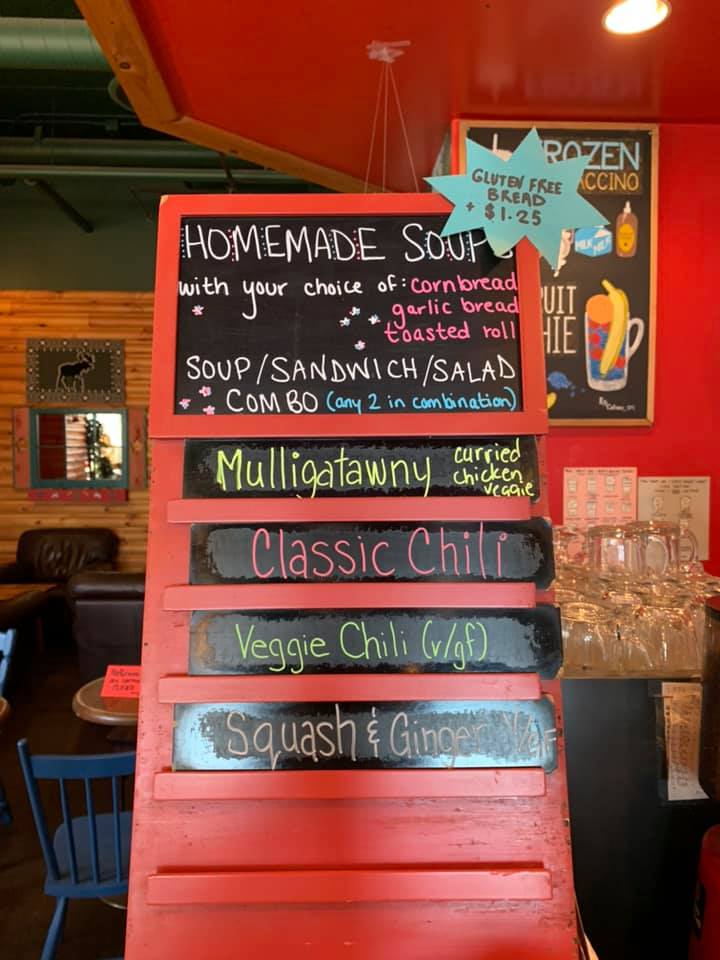 GLUTEN FREE
BREAD
+ $1.25
ROZEN
ACCINO
MILK MILK
UIT
HIE
HOMEMADE SOUP
with your choice of: cornbread
garlic bread
toasted roll
SOUP/SANDWICH/SALAD
COMBO (any 2 in combination)
Mulligatawny
curried
chicken
veggie
Classic Chili
Veggie Chili (v/gf)
Squash & Ginger V/GF